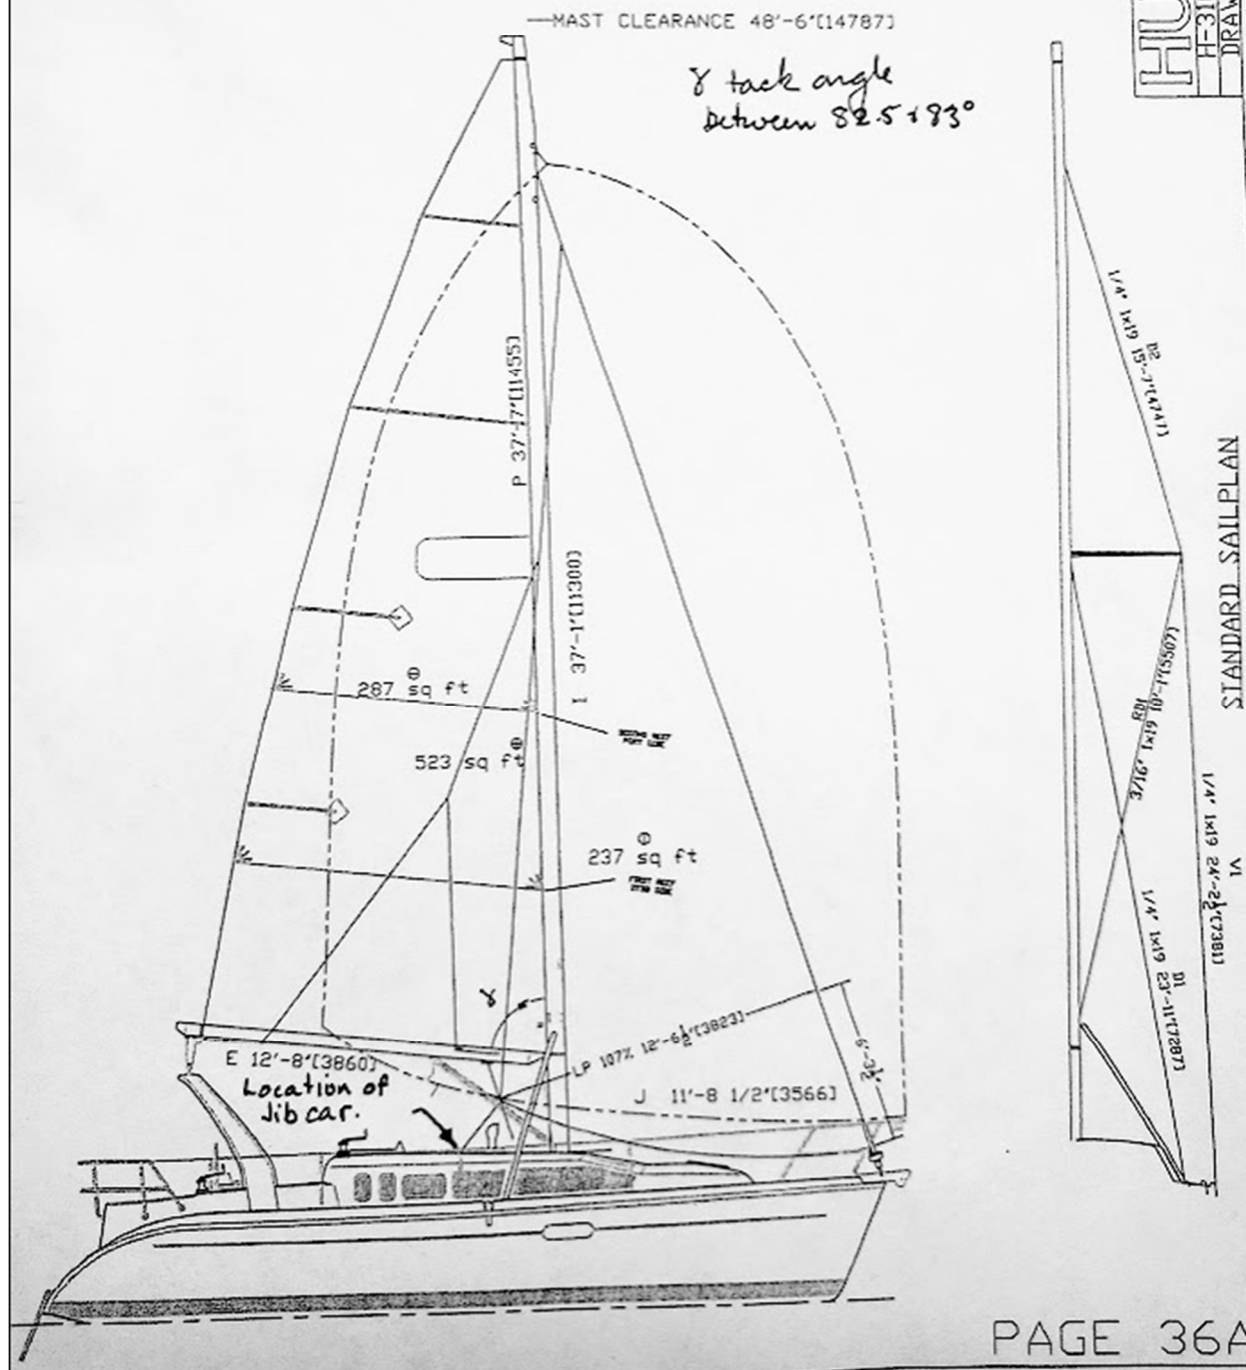 MAST CLEARANCE 48'-6"[14787]
γ tack angle
between 82.5 & 83°
HU
H-31
DRAW
P 37'-7"[11455]
I 37'-1"[11300]
287 sq ft
523 sq ft
237 sq ft
SECOND REEF
PORT SIDE
FIRST REEF
STBD SIDE
γ
E 12'-8"[3860]
Location of
Jib car.
LP 107% 12'-6½"[3823]
J 11'-8 1/2"[3566]
D2
1/4" 1x19 15'-7"[4747]
RD1
D1
1/4" 1x19 23'-11"[7287]
V1
1/4" 1x19 24'-2½"[7381]
STANDARD SAILPLAN
PAGE 36A